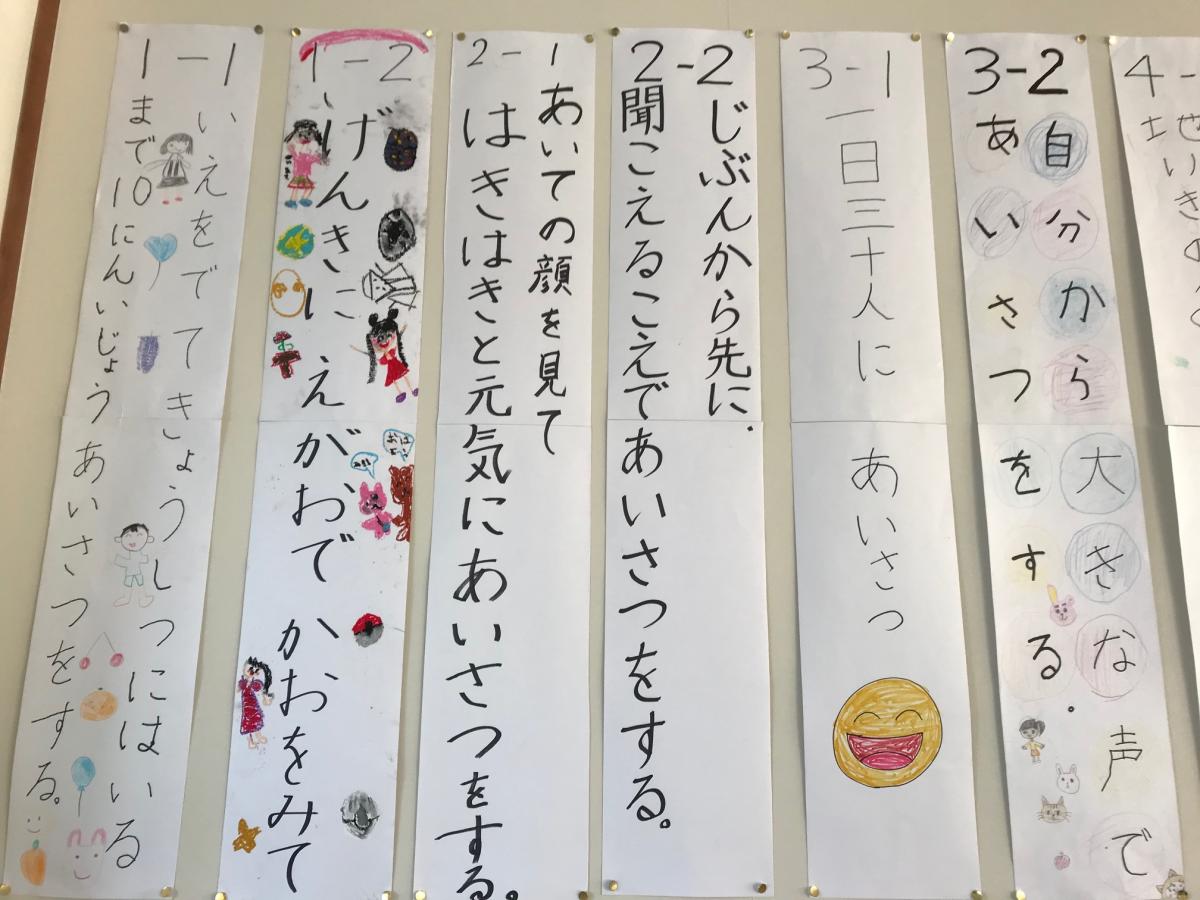 1-1
いえをでてきょうしつにはいる
まで10にんいじょうあいさつをする。
1-2
げんきに えがおで かおをみて
2-1
あいての顔を見て
はきはきと元気にあいさつをする。
2-2
じぶんから先に、
聞こえるこえであいさつをする。
3-1
一日三十人に あいさつ
3-2
自分から大きな声で
あいさつをする。
4-